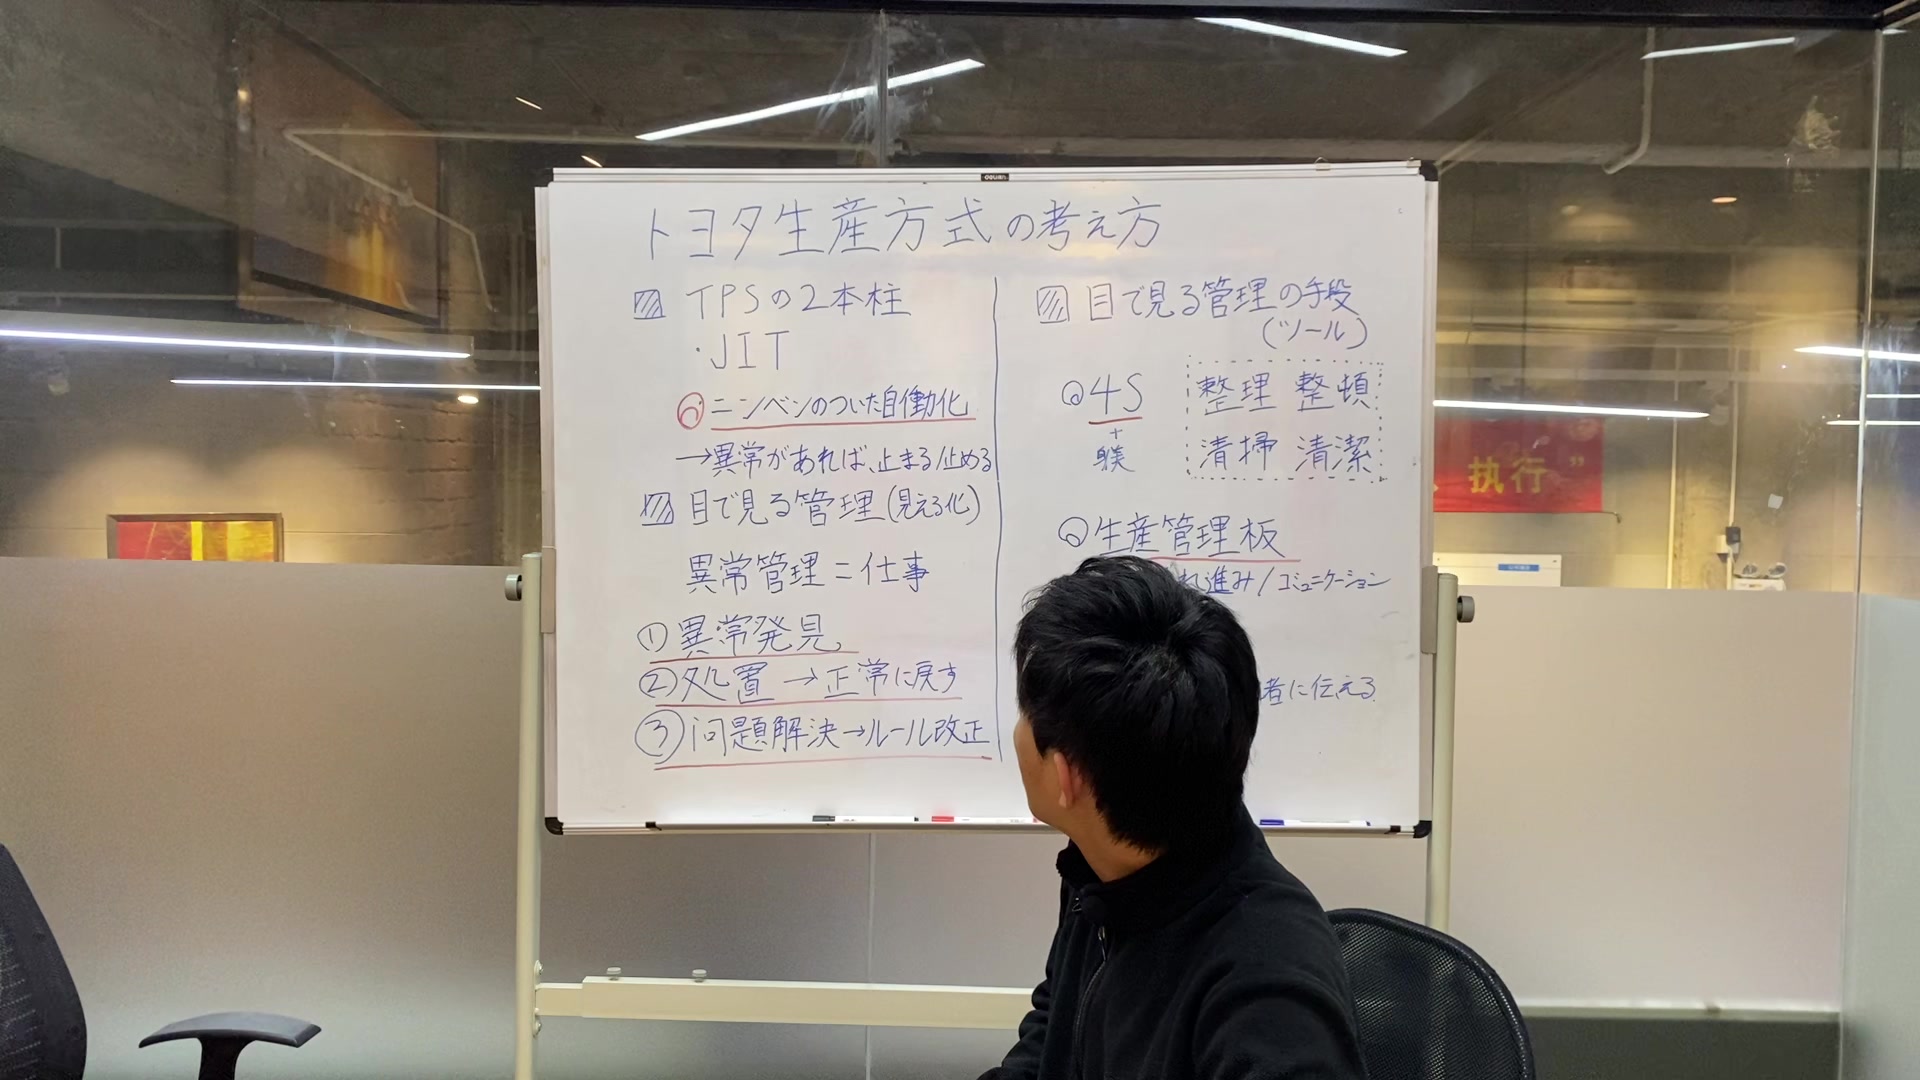 トヨタ生産方式の考え方
TPSの2本柱
・JIT
ニンベンのついた自働化
→異常があれば、止まる/止める
目で見る管理(見える化)
異常管理=仕事
①異常発見
②処置→正常に戻す
③問題解決→ルール改正
目で見る管理の手段
(ツール)
4S
+
躾
整理 整頓
清掃 清潔
生産管理板
れ進み/コミュニケーション
者に伝える
执行”